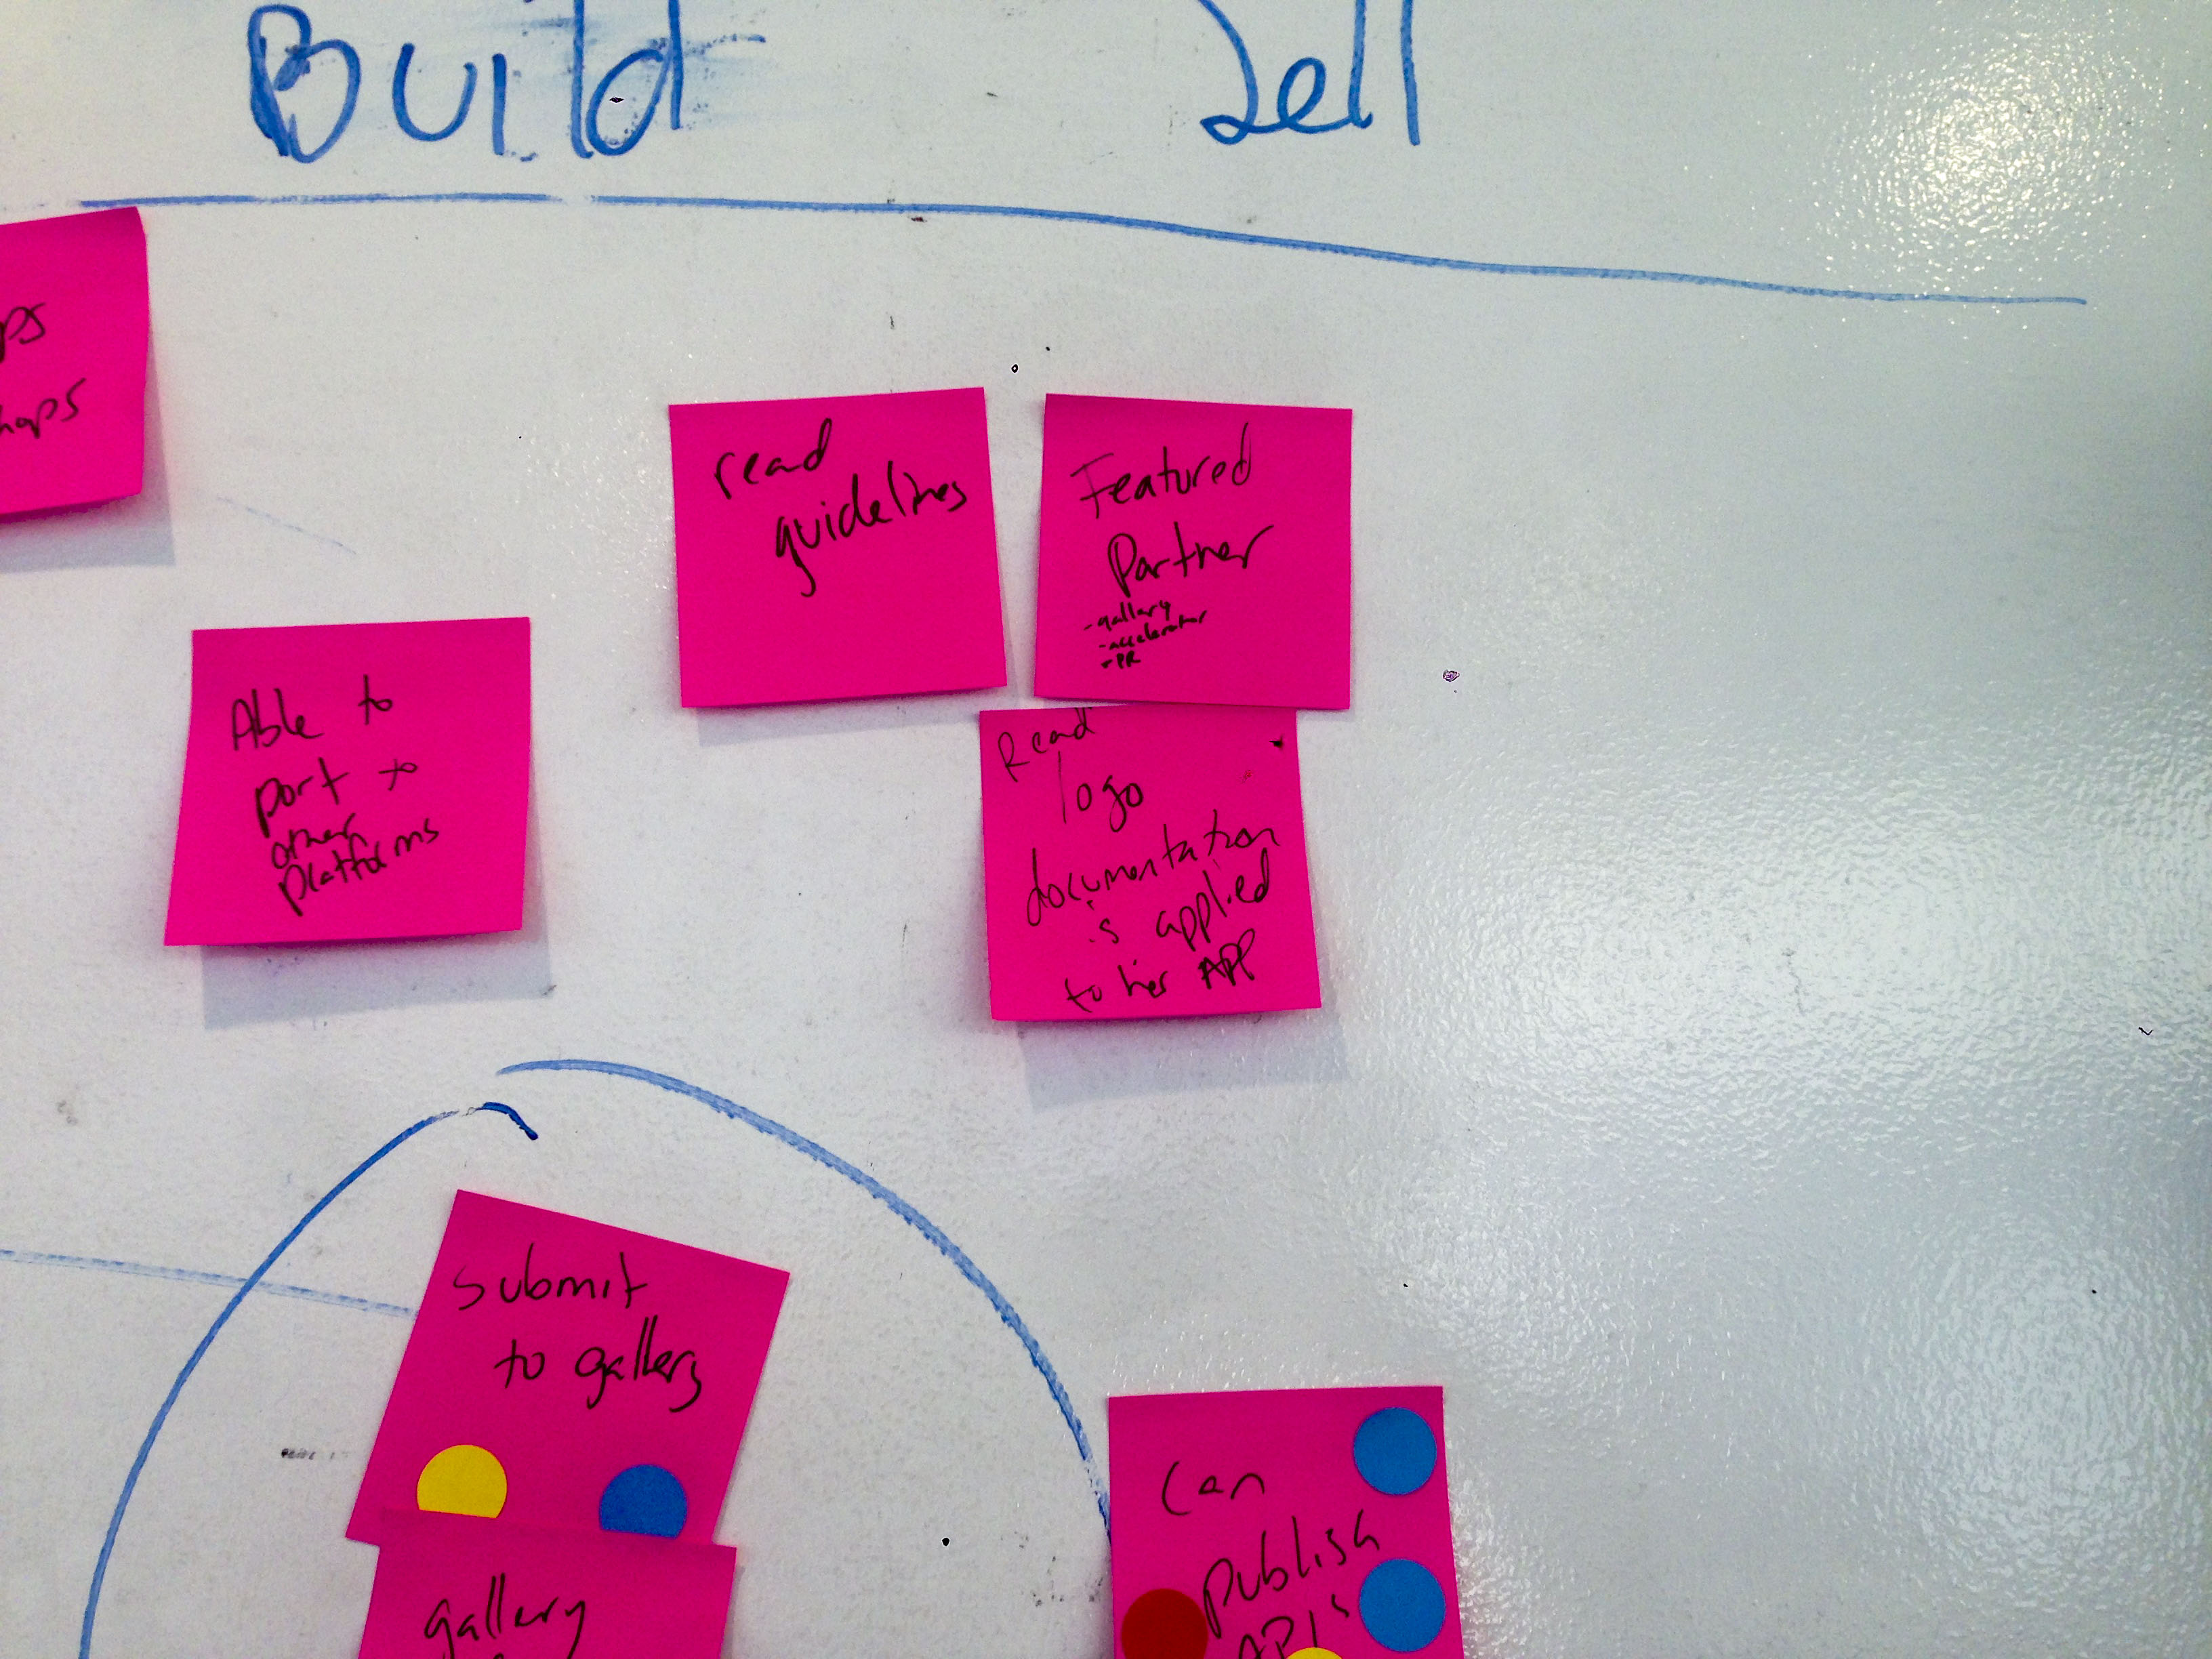 Build
Sell
ps
hops
read
guidelines
Featured
Partner
- gallery
- accelerator
- PR
Able to
port to
other
platforms
Read
logo
documentation
is applied
to her APP
submit
to gallery
gallery
Can
publish
API's